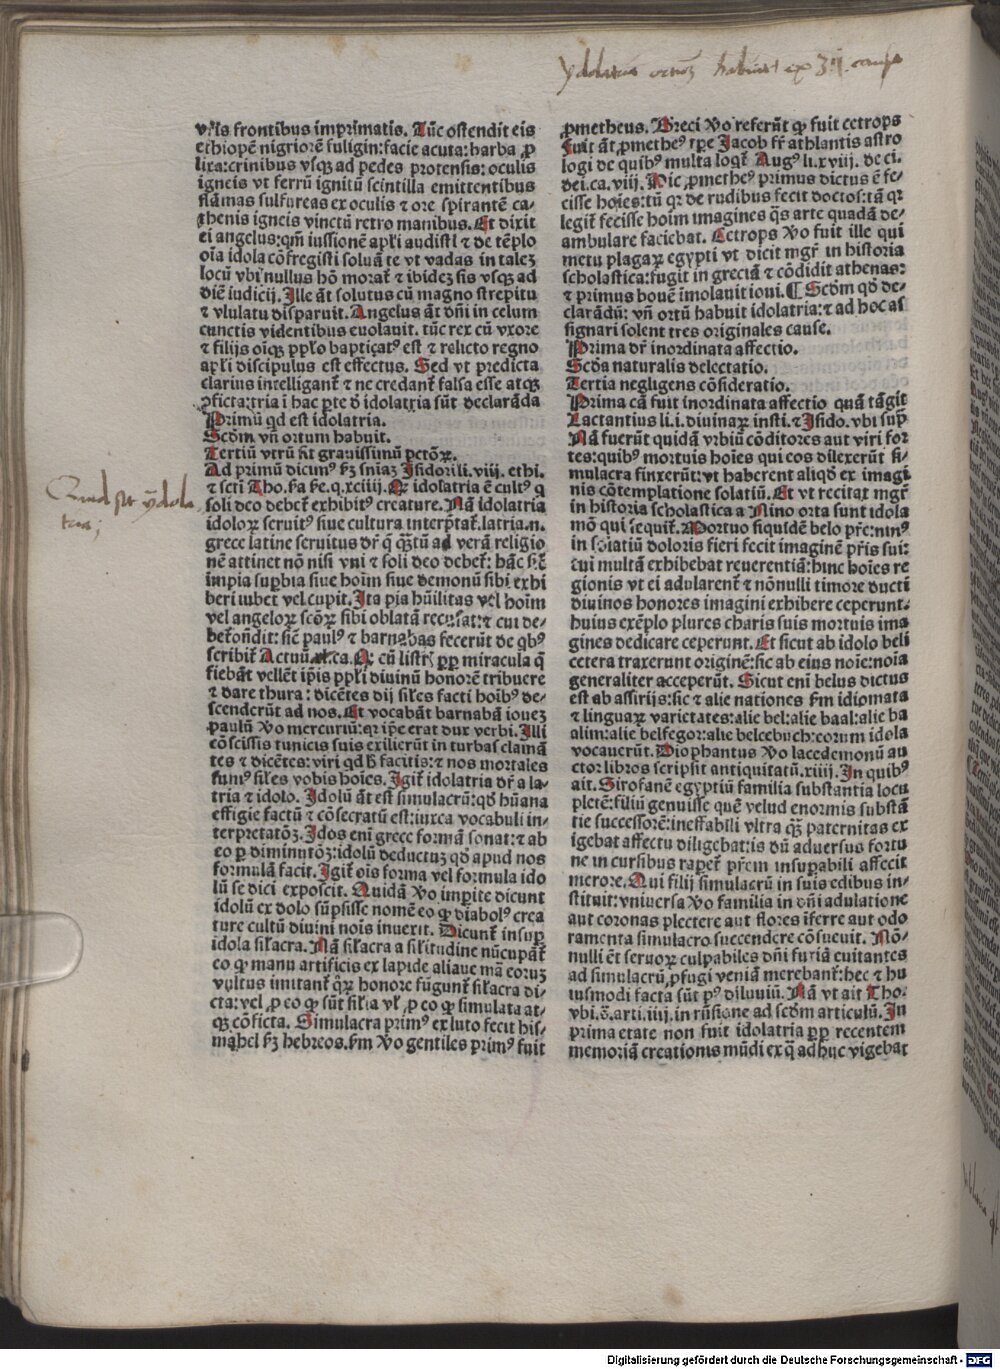 Ydolatria ortum habuit ex 3ii. causis
vr̄is frontibus imprimatis. Tūc ostendit eis
ethiopē nigriorē fuligin: facie acuta: barba ꝓ
lixa: crinibus vsqꝫ ad pedes protensis: oculis
igneis vt ferrū ignitū scintilla emittentibus
flāmas sulfureas ex oculis ⁊ ore spirantē ca-
thenis igneis vinctū retro manibus. Et dixit
ei angelus: qm̄ iussionē apl̓i audisti ⁊ de tēplo
oīa idola cōfregisti soluā te vt vadas in talez
locū vbi nullus hō morat᷑ ⁊ ibidez sis vsqꝫ ad
diē iudicij. Ille āt solutus cū magno strepitu
⁊ vlulatu disparuit. Angelus āt dn̄i in celum
cunctis videntibus euolauit. tūc rex cū vxore
⁊ filijs oīqꝫ ppl̓o baptizat⁹ est ⁊ relicto regno
apl̓i discipulus est effectus. Sed vt predicta
clarius intelligant᷑ ⁊ ne credant᷑ falsa esse atqꝫ
ꝓficta: tria ī hac ꝑte ď idolatria sūt declarāda
Primū qd est idolatria.
Scdm vn̄ ortum habuit.
Tertiū vtrū sit grauissimū petōꝝ.
Ad primū dicim⁹ ẜꝫ sniaꝫ Isidori li. viii. ethi.
⁊ scti Tho. ẜa ẜe. q. xciiij. Qꝫ idolatria ē cult⁹ q
soli deo debet᷑ exhibit⁹ creature. Nā idolatria
idoloꝝ seruit⁹ siue cultura interp̄tat᷑. latria. n.
grece latine seruitus dr̄ q̄ qꝫtū ad verā religio
nē attinet nō nisi vni ⁊ soli deo debet᷑: hāc sic̄
impia suꝑbia siue hoīm siue demonū sibi exhi
beri iubet vel cupit. Ita pia hūilitas vel hoīm
vel angeloꝝ scōꝝ sibi oblatā recusat: ⁊ cui de-
bet᷑ on̄dit: sic̄ paul⁹ ⁊ barnabas fecerūt de qb⁹
scribit᷑ Actuū. ca. Qꝫ cū listris ꝓp̄ miracula q̄
fiebāt vellēt ip̄is ppl̓i diuinū honorē tribuere
⁊ dare thura: dicētes dij sil̓es facti hoīb⁹ de-
scenderūt ad nos. Et vocabāt barnabā iouez
paulū v̄o mercuriū: qꝛ ip̄e erat dux verbi. Illi
cōscissis tunicis suis exilierūt in turbas clamā
tes ⁊ dicētes: viri qd h̄ facitis: ⁊ nos mortales
sum⁹ sil̓es vobis hoīes. Igit᷑ idolatria dr̄ a la-
tria ⁊ idolo. Idolū āt est simulacrū: qd̓ hūana
effigie factū ⁊ cōsecratū est: iuxta vocabuli in-
terpretatōꝫ. Idos eni grece formā sonat: ⁊ ab
eo ꝑ diminutōꝫ: idolū deductuꝫ qd̓ apud nos
formulā facit. Igit᷑ oīs forma vel formula ido
lū se dici exposcit. Quidā v̄o imp̄ite dicunt
idolū ex dolo sūpsisse nomē eo qꝫ diabol⁹ crea
ture cultū diuini noīs inuexit. Dicunt᷑ insuꝑ
idola sil̓acra. Nā sil̓acra a sil̓itudine nūcupāt᷑
eo qꝫ manu artificis ex lapide aliaue mā eoruꝫ
vultus imitant᷑ qꝛ honore fūgunt᷑ sil̓acra di-
cta: vel ꝓ eo qꝫ sūt sil̓ia vl̓ ꝓ eo qꝫ simulata at-
qꝫ cōficta. Simulacra prim⁹ ex luto fecit his-
mahel ẜꝫ hebreos. ẜm v̄o gentiles prim⁹ fuit
Quid sit ydola
tria;
ꝓmetheus. Greci v̄o referūt qꝫ fuit cecrops
Fuit āt ꝓmethe⁹ tꝑe Jacob fr̄ athlantis astro
logi de quib⁹ multa loqt᷑ Aug⁹ li. xviij. de ci.
dei. ca. viij. Hic ꝓmethe⁹ primus dictus ē fe-
cisse hoīes: tū qꝛ de rudibus fecit doctos: tā qꝛ
legit᷑ fecisse hoīm imagines q̄s arte quadā de-
ambulare faciebat. Cecrops v̄o fuit ille qui
metu plagaꝝ egypti vt dicit mgr̄ in historia
scholastica: fugit in greciā ⁊ cōdidit athenas:
⁊ primus bouē imolauit ioui. ¶ Scdm qd̓ de-
clarādū: vn̄ ortū habuit idolatria: ⁊ ad hoc as
signari solent tres originales cause.
Prima dr̄ inordinata affectio.
Scd̓a naturalis delectatio.
Tertia negligens cōsideratio.
Prima cā fuit inordinata affectio quā tāgit
Lactantius li. i. diuinaꝝ insti. ⁊ Isido. vbi sup̄
Nā fuerūt quidā vrbiū cōditores aut viri for
tes: quib⁹ mortuis hoīes qui eos dilexerūt si-
mulacra finxerūt: vt haberent aliqd̓ ex imagi
nis cōtemplatione solatiū. Et vt recitat mgr̄
in historia scholastica a Nino orta sunt idola
mō qui sequit᷑. Mortuo siquidē belo pr̄e: nin⁹
in solatiū doloris fieri fecit imaginē pr̄is sui:
cui multā exhibebat reuerentiā: hinc hoīes re
gionis vt ei adularent᷑ ⁊ nōnulli timore ducti
diuinos honores imagini exhibere ceperunt.
huius exēplo plures charis suis mortuis ima
gines dedicare ceperunt. Et sicut ab idolo beli
cetera traxerunt originē: sic ab eius noīe: noīa
generaliter acceperūt. Sicut eni belus dictus
est ab assirijs: sic ⁊ alie nationes ẜm idiomata
⁊ linguaꝝ varietates: alie bel: alie baal: alie ba
alim: alie belfegor: alie belcebuch: eorum idola
vocauerūt. Diophantus v̄o lacedemonū au
ctor libros scripsit antiquitatū. xiiij. In quib⁹
ait. Sirofanē egyptiū familia substantia locu
pletē: filiū genuisse quē velud enormis substā
tie successorē: ineffabili vltra qꝫ paternitas ex
igebat affectu diligebat: is dū aduersus fortu
ne in cursibus rapet᷑ pr̄em insuꝑabili affecit
merore. Qui filij simulacrū in suis edibus in-
stituit: vniuersa v̄o familia in dn̄i adulatione
aut coronas plectere aut flores īferre aut odo
ramenta simulacro succendere cōsueuit. Nō-
nulli ēt seruoꝝ culpabiles dn̄i furiā euitantes
ad simulacrū ꝓfugi veniā merebant᷑: hec ⁊ hu
iusmodi facta sūt p⁹ diluuiū. Nā vt ait Tho.
vbi. s̄. arti. iiij. in rn̄sione ad scdm articulū. In
prima etate non fuit idolatria ꝓp̄ recentem
memoriā creationis mūdi ex q̄ adhuc vigebat
Digitalisierung gefördert durch die Deutsche Forschungsgemeinschaft - DFG